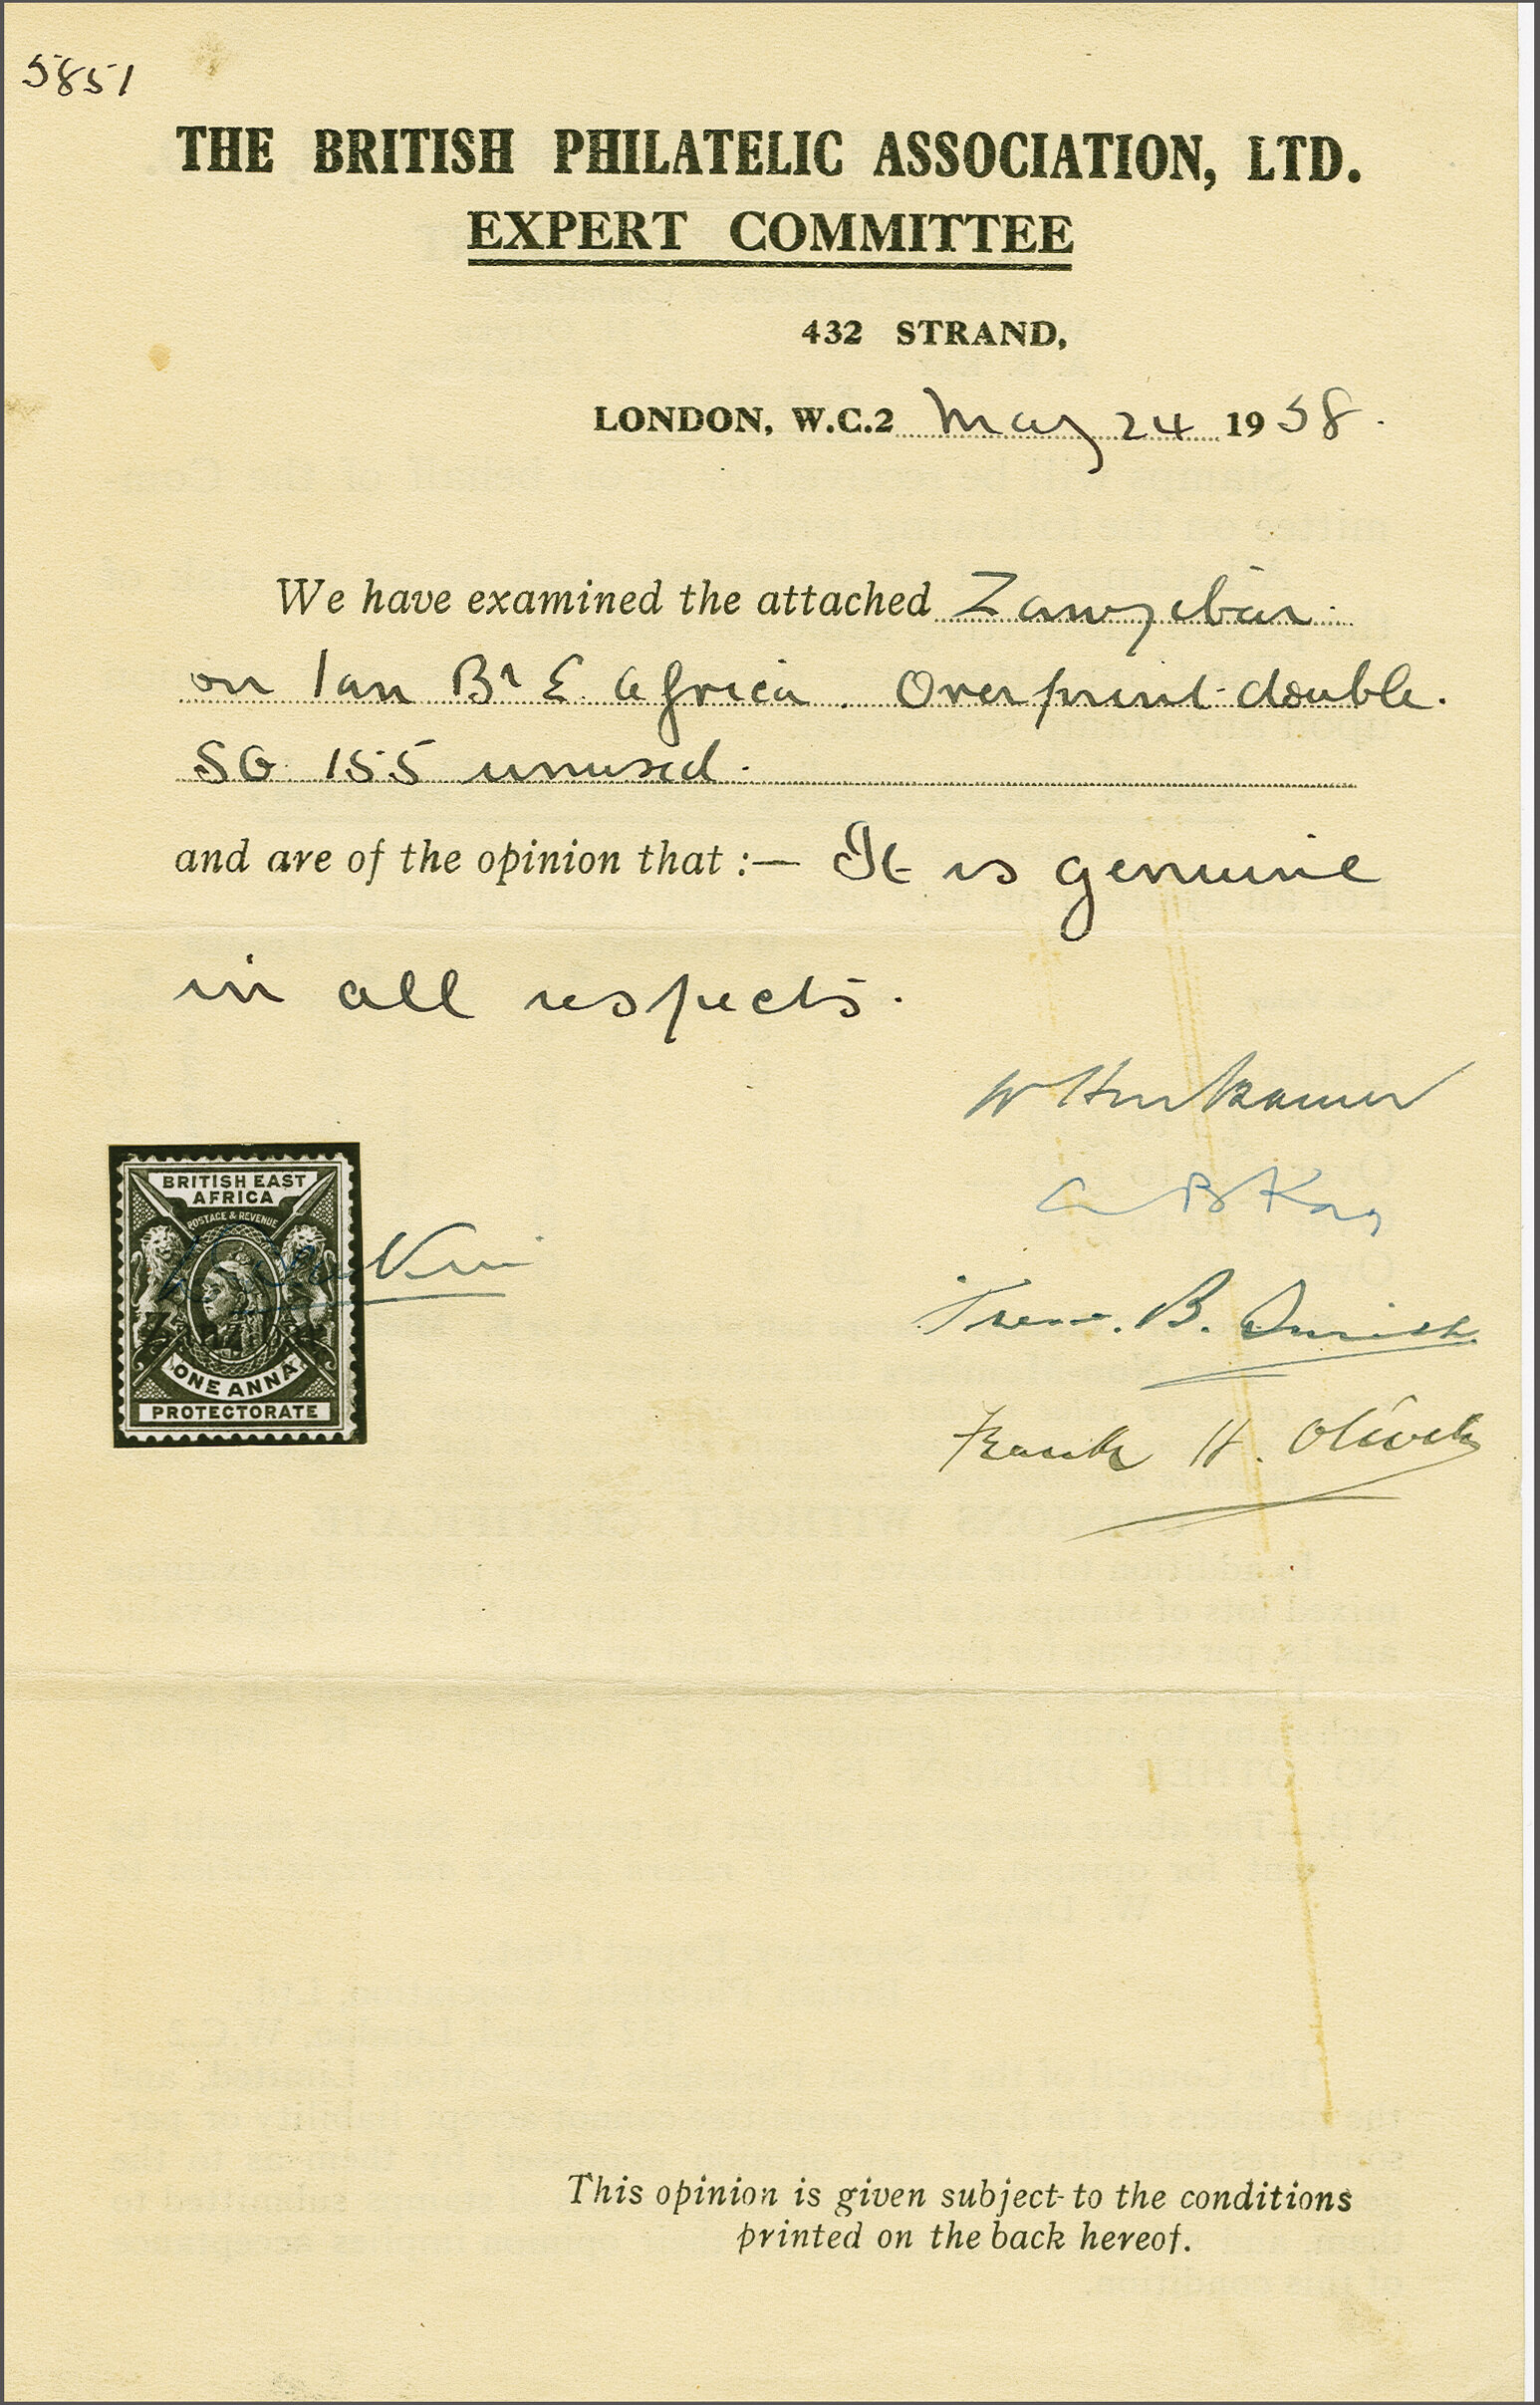 5851
THE BRITISH PHILATELIC ASSOCIATION, LTD.
EXPERT COMMITTEE
432 STRAND,
LONDON, W.C.2 May 24 1938.
We have examined the attached Zanzibar
on 1an Br E. Africa. Overprint double.
SG 155 unused.
and are of the opinion that :— It is genuine
in all respects.
BRITISH EAST
AFRICA
POSTAGE & REVENUE
Zanzibar
ONE ANNA
PROTECTORATE
B.
Frank H. Oliver
This opinion is given subject to the conditions
printed on the back hereof.